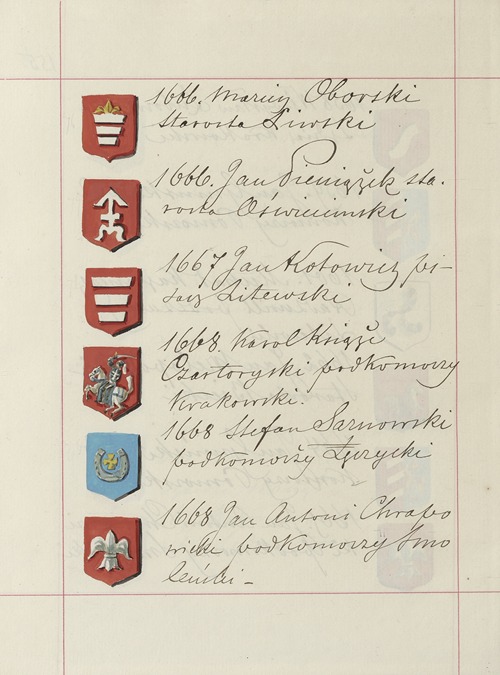 1666. Marcin Oborski
Starosta Liwski
1666. Jan Pieniążek sta-
rosta Oświecimski
1667 Jan Kotowicz pi-
sarz Litewski
1668. Karol Książe
Czartoryski podkomorzy
Krakowski.
1668 Stefan Sarnowski
podkomorży Łęczycki
1668 Jan Antoni Chrapo
wicki podkomorzy Smo
leński -